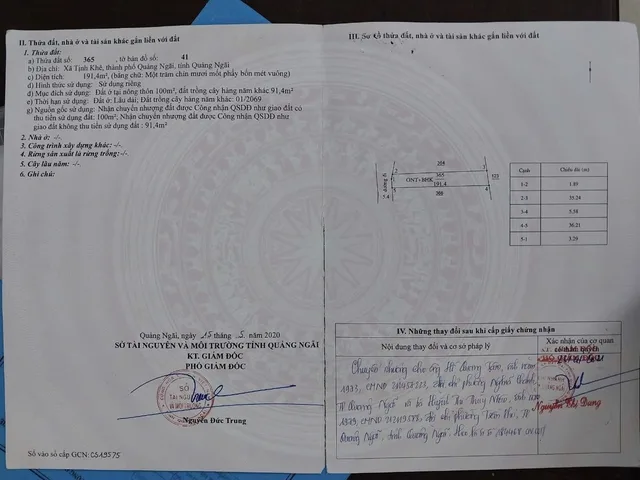 II. Thửa đất, nhà ở và tài sản khác gắn liền với đất
1. Thửa đất:
a) Thửa đất số: 365, tờ bản đồ số: 41
b) Địa chỉ: Xã Tịnh Khê, thành phố Quảng Ngãi, tỉnh Quảng Ngãi
c) Diện tích: 191,4m², (bằng chữ: Một trăm chín mươi mốt phẩy bốn mét vuông)
d) Hình thức sử dụng: Sử dụng riêng
đ) Mục đích sử dụng: Đất ở tại nông thôn 100m², đất trồng cây hàng năm khác 91,4m²
e) Thời hạn sử dụng: Đất ở: Lâu dài; Đất trồng cây hàng năm khác: 01/2069
g) Nguồn gốc sử dụng: Nhận chuyển nhượng đất được Công nhận QSDĐ như giao đất có
thu tiền sử dụng đất: 100m², Nhận chuyển nhượng đất được Công nhận QSDĐ như
giao đất không thu tiền sử dụng đất : 91,4m²
2. Nhà ở: -/-
3. Công trình xây dựng khác: -/-
4. Rừng sản xuất là rừng trồng:-/-
5. Cây lâu năm: -/-
6. Ghi chú:
Quảng Ngãi, ngày 15 tháng 5 năm 2020
SỞ TÀI NGUYÊN VÀ MÔI TRƯỜNG TỈNH QUẢNG NGÃI
KT. GIÁM ĐỐC
PHÓ GIÁM ĐỐC
SỞ
TÀI NGUYÊN
VÀ MÔI TRƯỜNG
Nguyễn Đức Trung
Số vào sổ cấp GCN: CS19575
III. Sơ đồ thửa đất, nhà ở và tài sản khác gắn liền với đất
đường đi
5.4
ONT+BHK
365
191.4
Cạnh Chiều dài (m)
1-2
2-3 35.24
3-4 5.58
4-5 36.21
5-1 3.29
IV. Những thay đổi sau khi cấp giấy chứng nhận
Nội dung thay đổi và cơ sở pháp lý
Xác nhận của cơ quan
Chuyển nhượng cho ông
CMND phường Nghĩa Chánh,
TP Quảng Ngãi và bà Huỳnh Thị Thúy
1979, CMND
Quảng Ngãi, tỉnh Quảng Ngãi.
Nguyễn Thị Dung